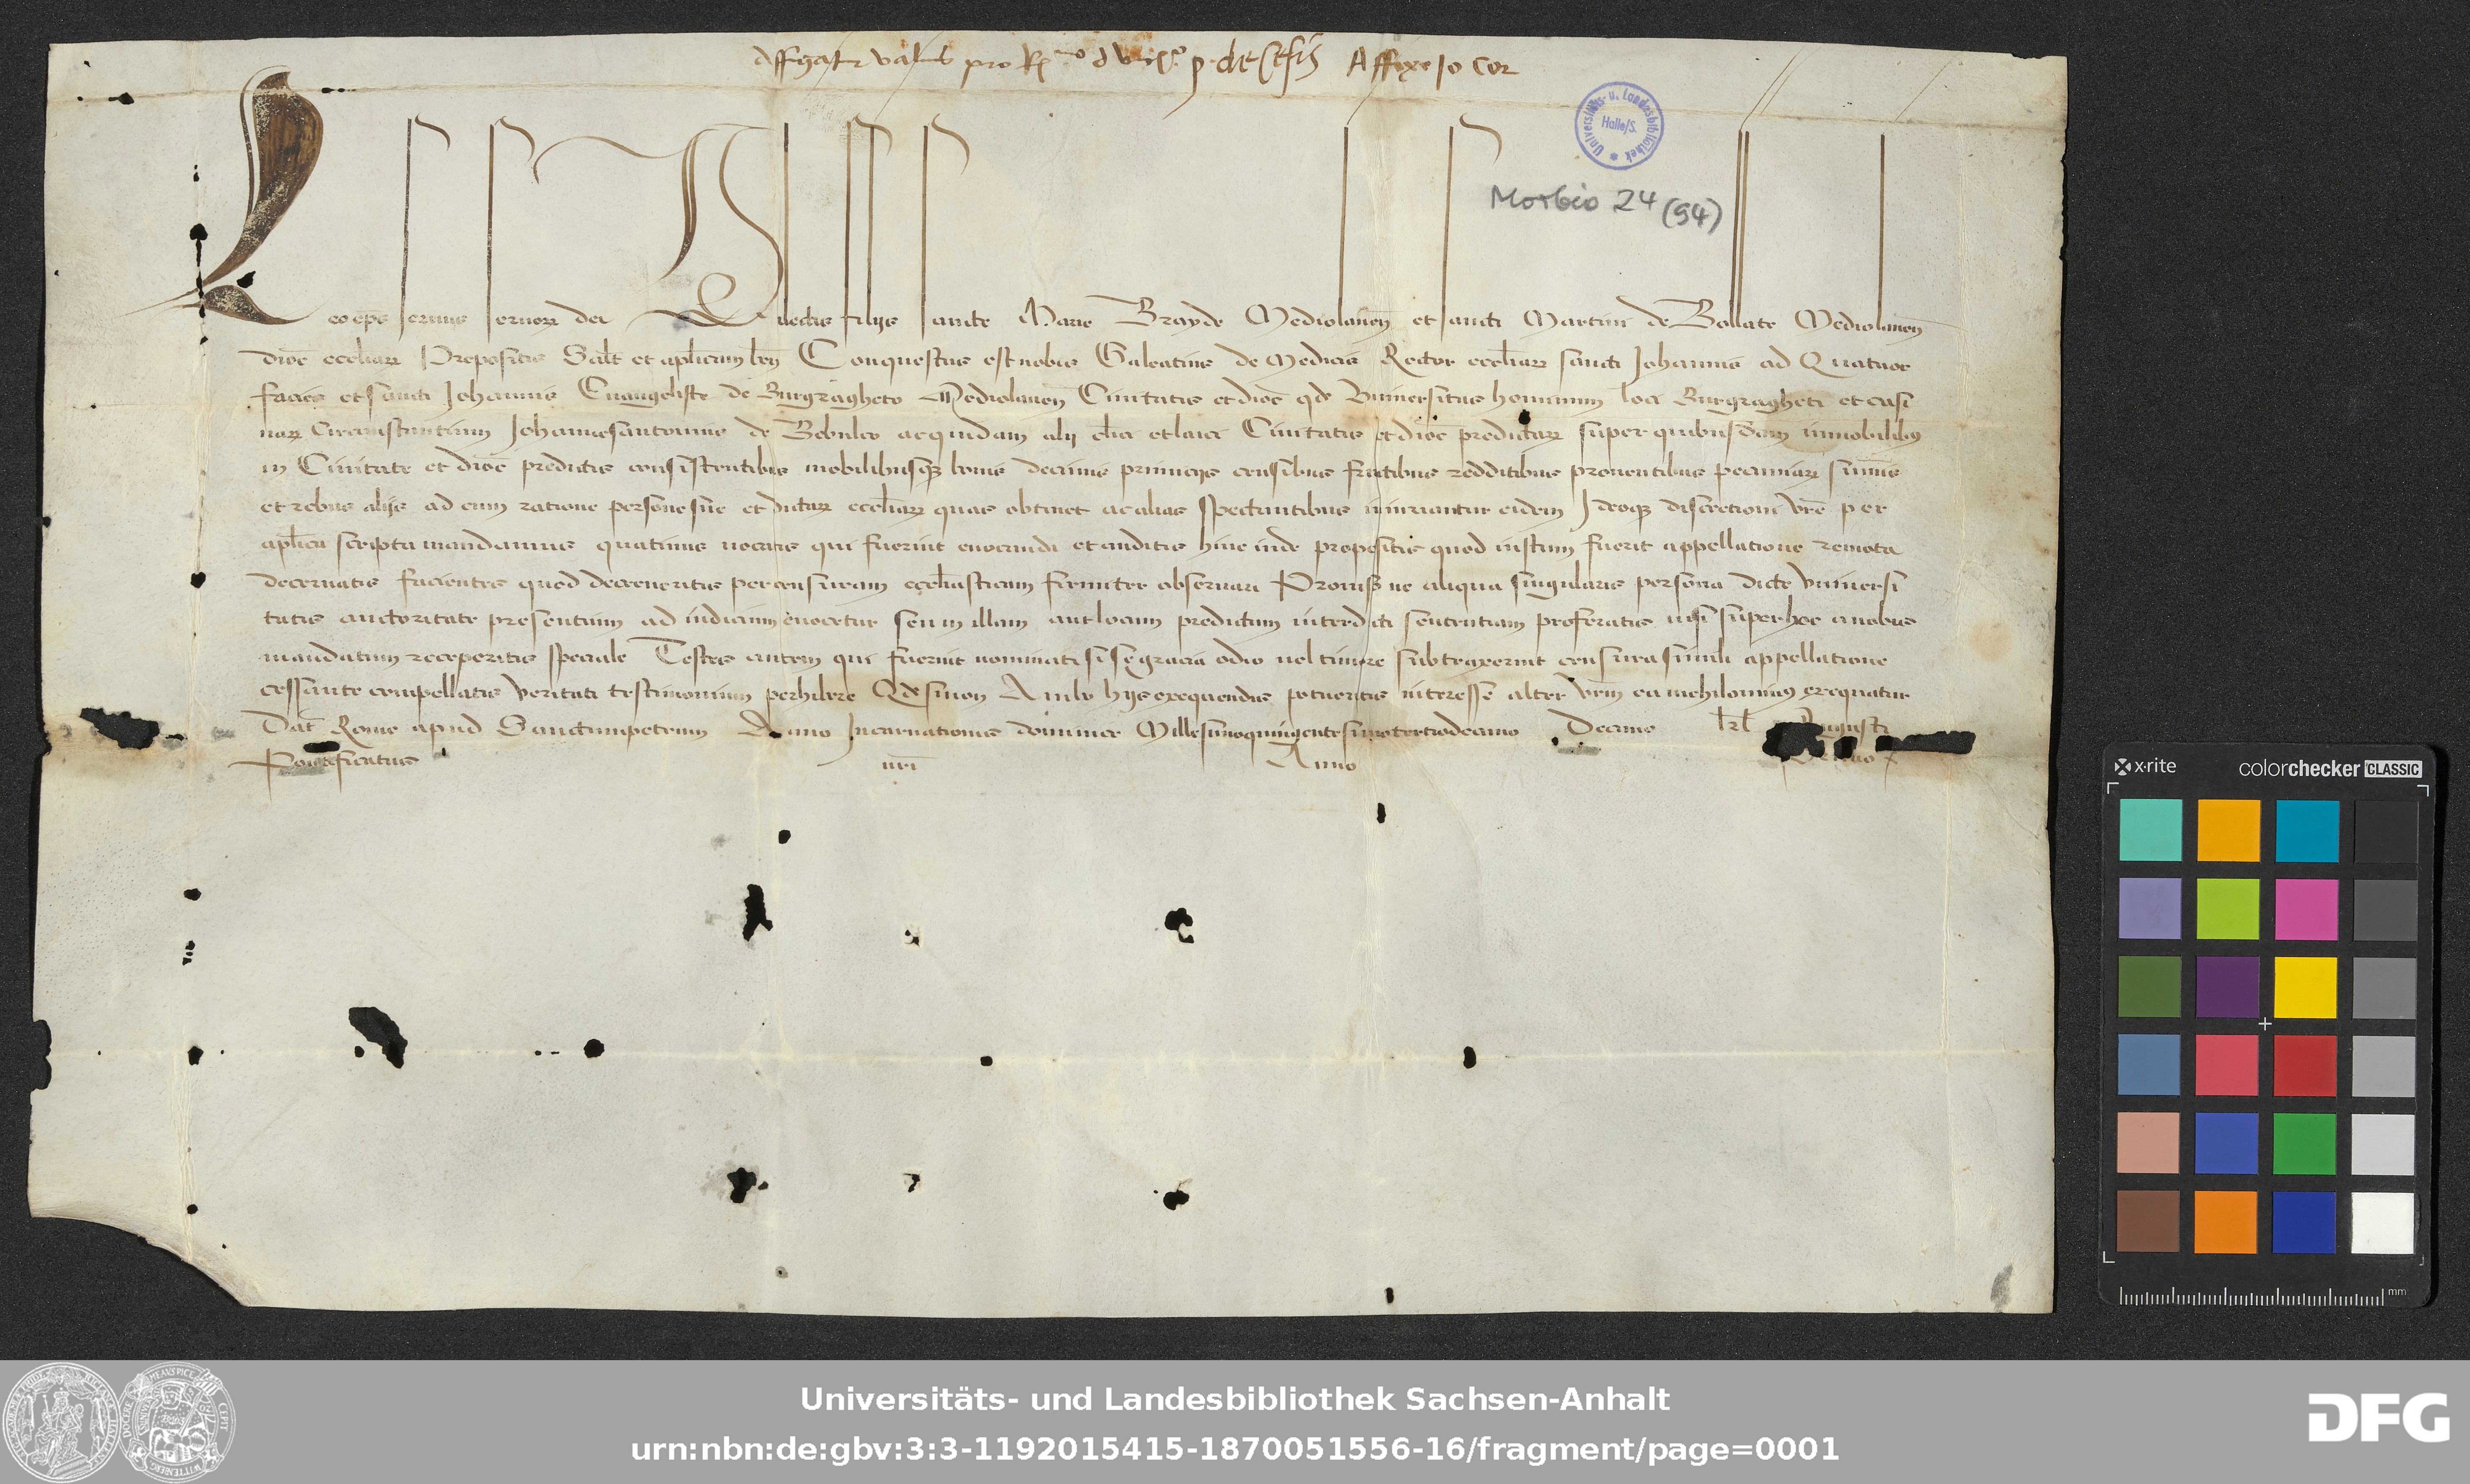 Affigatur valvis pro R^mo d vic^o p. de Cesis Affixe Jo Cor
Universitäts- u. Landesbibliothek * Halle/S.
Morbio 24 (94)
Leo ep̄s servus servoꝝ dei Dilectis filiis sancte Marie Brayde Mediolaneñ et sancti Martini de Bollate Mediolaneñ
dioc̄ ecel̄iaꝝ Prepositis Sal̄t et apl̄icam beñ Conquestus est nobis Galeatius de Medicis Rector ecel̄iaꝝ sancti Johannis ad Quatuor
facies et sancti Johannis Evangeliste de Burgragheto Mediolaneñ Civitatis et dioc̄ qđ Universitas hominum loci Burgragheti et casi
naꝝ circumstantium Johannesantonius de ac quidam alij cl̄ici et laici Civitatis et dioc̄ predictaꝝ super quibusdam immobilibus
in Civitate et dioc̄ predictis consistentibus mobilibusqꝫ bonis decimis primicijs censibus fructibus redditibus proventibus pecuniaꝝ sum̄is
et rebus alijs ad eum ratione persone sue et dictaꝝ ecel̄iaꝝ quas obtinet ac alias spectantibus iniuriantur eidem Ideoqꝫ discretioni vr̄e per
apl̄ica scripta mandamus quatinus vocatis qui fuerint evocandi et auditis hinc inde propositis quod iustum fuerit appellatione remota
decernatis facientes quod decreveritis per censuram ecel̄iasticam firmiter observari Proviso ne aliqua singularis persona dicte Universi
tatis auctoritate presentium ad iudicium evocetur seu in illam aut locum predictum interdicti sententiam proferatis nisi super hoc a nobis
mandatum receperitis speciale Testes autem qui fuerint nominati si se gracia odio vel timore subtraxerint censura simili appellatione
cessante compellatis veritati testimonium perhibere Qđ si non Ambo hijs exequendis potueritis interesse alter vr̄m ea nichilominus exequatur
Dat̄ Rome apud Sanctumpetrum Anno Incarnationis dominice Millesimoquingentesimotertiodecimo Decimo kl̄ Augusti
Pontificatus nr̄i Anno Primo
x·rite colorchecker CLASSIC
mm
Universitäts- und Landesbibliothek Sachsen-Anhalt
urn:nbn:de:gbv:3:3-1192015415-1870051556-16/fragment/page=0001
DFG